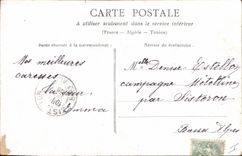 CARTE POSTALE
à utiliser seulement dans le service intérieur
(France - Algérie - Tunisie)
Partie réservée à la correspondance
Adresse du destinataire
Mes meilleures
caresses
Emma
Mlle Denise Estellon
campagne
par Sisteron
Basses Alpes